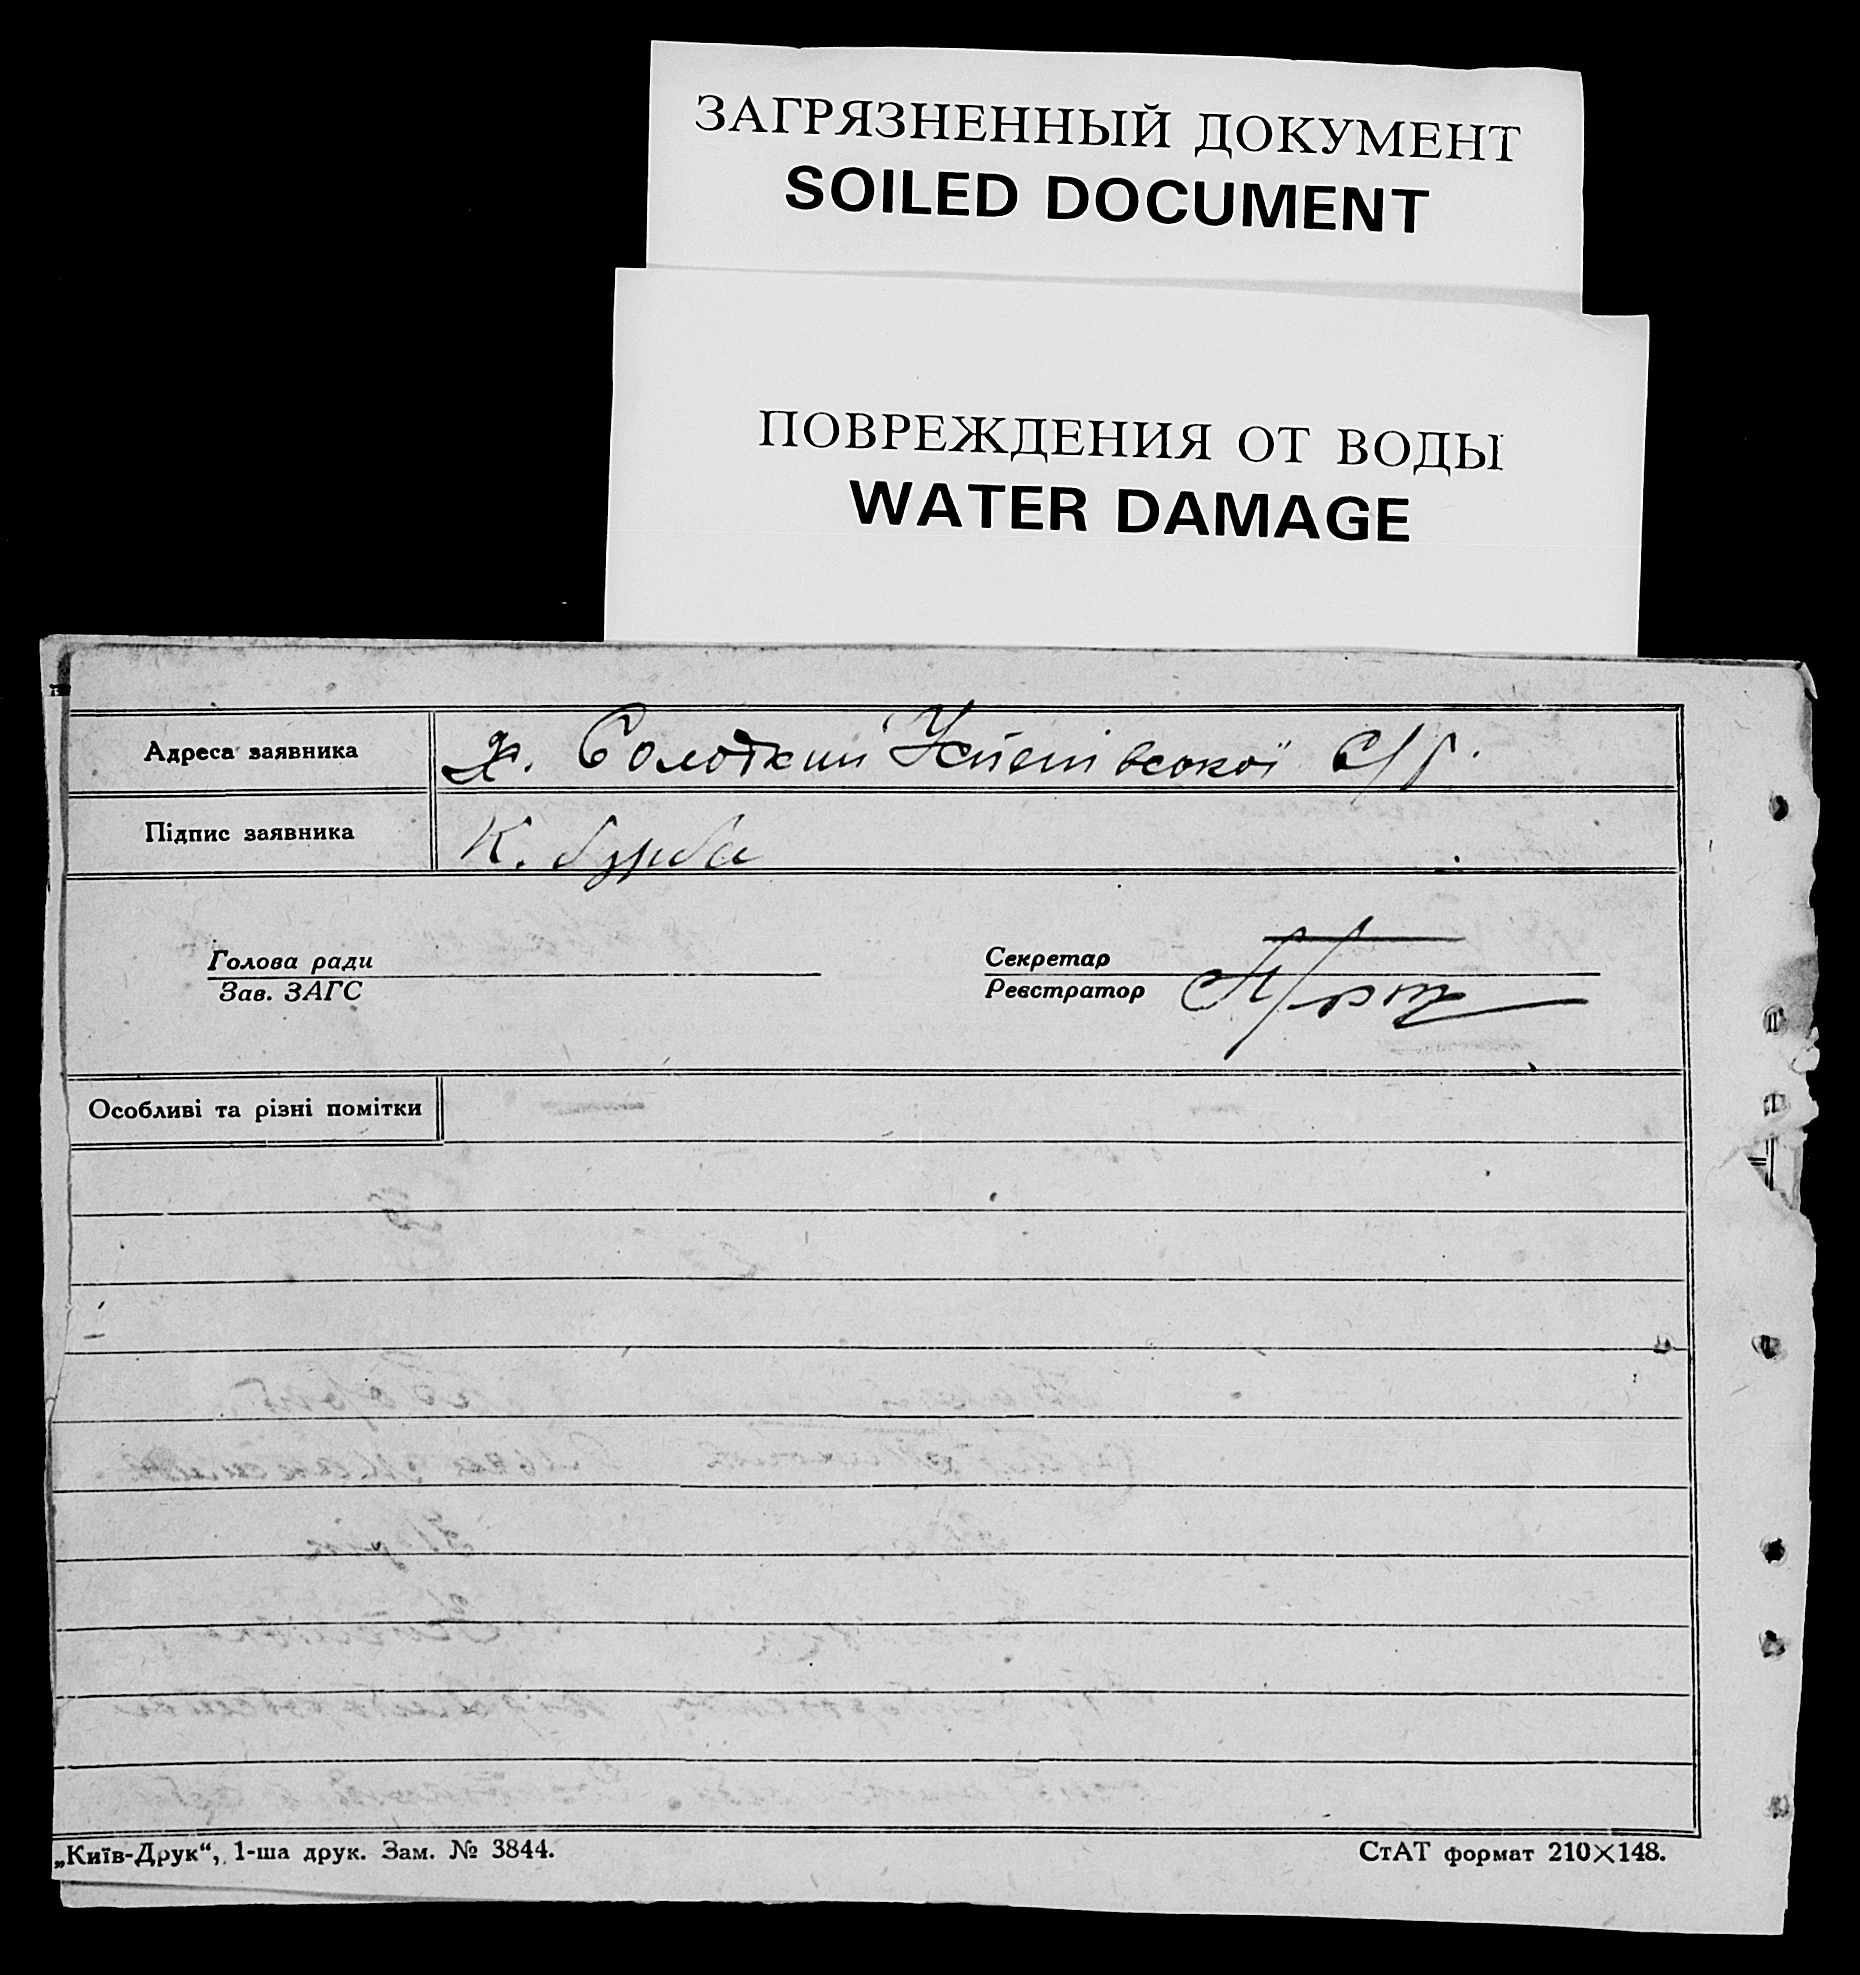 ЗАГРЯЗНЕННЫЙ ДОКУМЕНТ
SOILED DOCUMENT
ПОВРЕЖДЕНИЯ ОТ ВОДЫ
WATER DAMAGE
Адреса заявника
х. Солодкий С/Р.
Підпис заявника
К. Бурба
Голова ради
Зав. ЗАГС
Секретар
Реєстратор
Особливі та різні помітки
„Київ-Друк“, 1-ша друк. Зам. № 3844.
СтАТ формат 210×148.